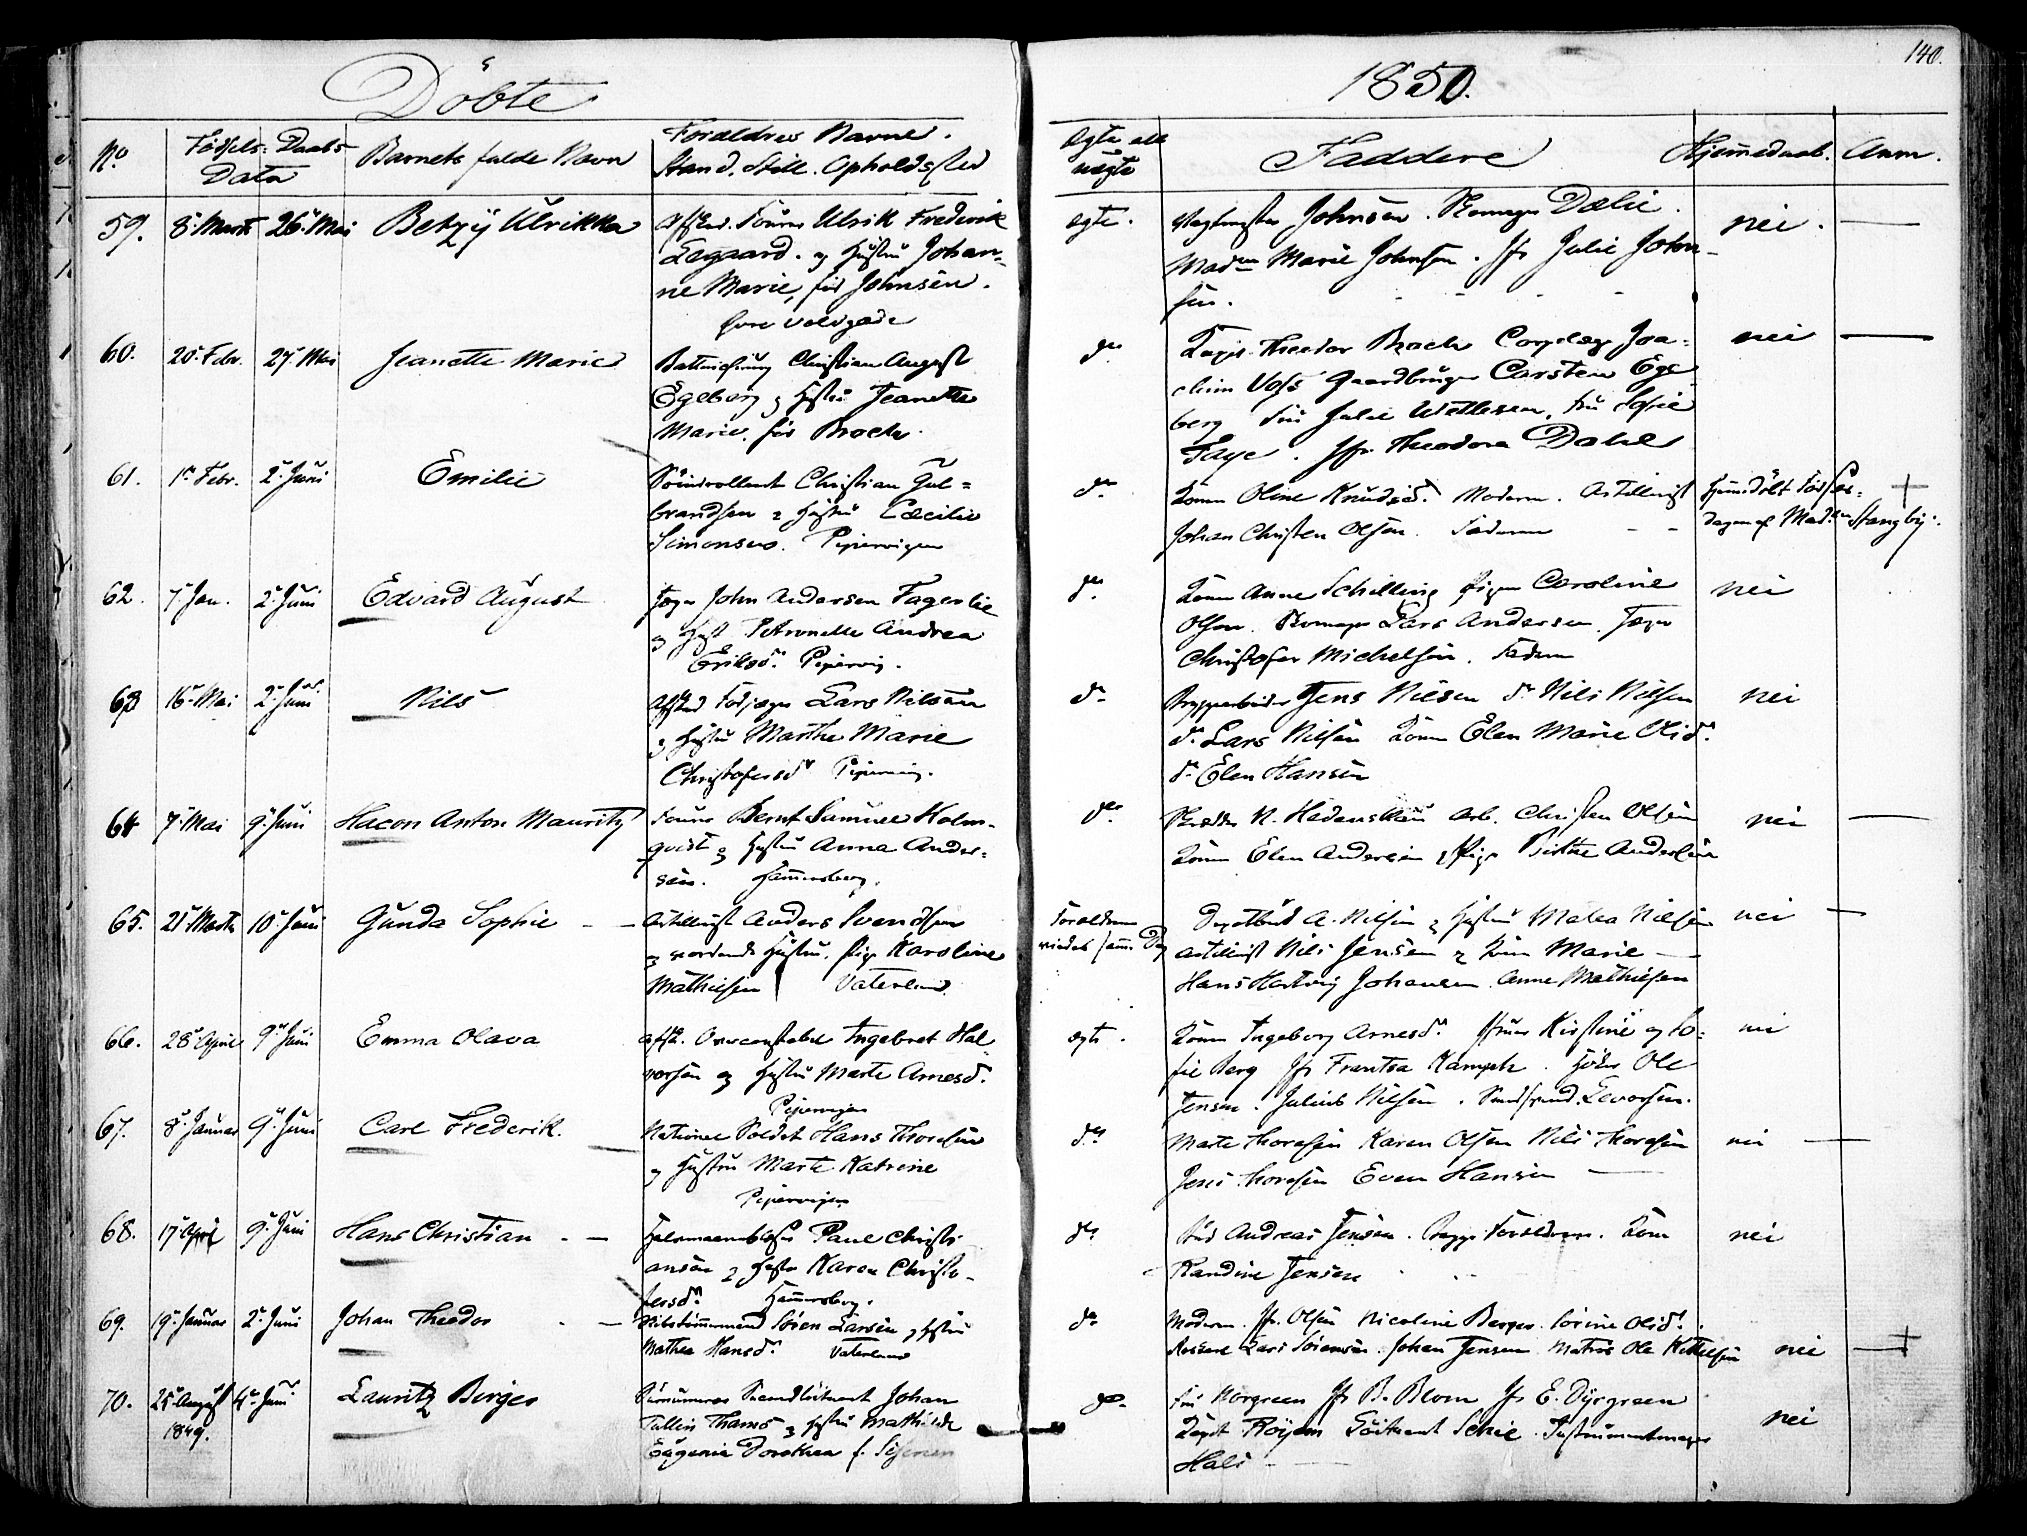 140.
Döbte
1850.
No
Fødsels- Daabs-
Data
Barnets fulde Navn
Forældres Navne.
Stand. Still. Opholdssted
Ægte ell
uægte
Faddere
Hjemmedaab.
Anm.
59. 8. Marts 26. Mai Betzÿ Ulrikka
Afsked. Ulrik Frederik
Legaard. og Hustru Johan-
ne Marie, fød Johnsen.
Øvre Voldgade
ægte.
Johnsen. Skomager Dælie.
Madm Marie Johnsen. Jfr Julie John-
sen.
nei. —
60. 20. Febr. 27. Mai Jeanette Marie
Christian August
Egeberg og Hustru Jeanette
Marie. fød Broch.
do
Theodor Broch Corpslæge Joa-
chim Voss Gaardbruger Carsten Ege
berg Fru Julie Wettlesen, Fru Sofie
Faye. Jfr. Theodora Dahl
nei —
61. 1. Febr. 2. Juni Emilie
Christian Gul-
brandsen & Hustru Cæcilie
Simonsen. Pipervigen
do
Konen Oline Knudsd. Moderen. Artillerist
Johan Christen Olsen. Faderen
Hjemdöbt
dagen af Madm Stangbÿ.
+
62. 7. Jan. 2. Juni Edvard August
John Andersen Fagerlie
og Hust Petronelle Andrea
Eriksd. Pipervig.
do
Konen Anne Schilling Pigen Caroline
Olsen. Skomager Lars Andersen.
Christofer Michelsen. Faderen
nei
63 16. Mai 2. Juni Nils
Afsked Lars Nilsen
og Hustru Marthe Marie
Christofersd Pipervig.
do
Bryggearbeider Jens Nilsen do Nils Nilsen
do Lars Nilsen Konen Elen Marie Olsd.
do Elen Hansen
nei
64 7. Mai 9. Juni Hacon Anton Mauritz
Bernt Samuel Holm-
qvist og Hustru Anna Ander-
sen. Hammersborg.
do
N. Arb. Christen Olsen
Konen Elen Andersen & Pige Birthe Andersen
nei —
65. 21. Marts 10. Juni Gunda Sophie
Artillerist Anders Svendsen
og vordende Hustru, Pige Karoline
Mathisen Vaterland
Forældrene
viedes samme Dag
A. Nilsen & Hustru Matea Nilsen
Artillerist Nils Jensen & Konen Marie —
Hans Hartvig Johansen. Anne Mathisen
nei —
66. 28. April 9. Juni Emma Olava
afsk. Overconstabel Ingebret Hal-
vorsen og Hustru Marte Arnesd.
Pipervigen
ægte.
Konen Ingeborg Arnesd. Kirstine og So-
fie Berg Jfr Frantsa Kamph. Ole
Jensen. Julius Nilsen.
nei
67. 8. Januar 9. Juni Carl Frederik.
National Soldat Hans Thoresen
og Hustru Marte Katrine
Pipervigen
do
Marte Thoresen Karen Olsen Nils Thoresen
Jens Thoresen Even Hansen —
nei —
68. 17. April 9. Juni Hans Christian
Paul Christi-
ansen & Hustru Karen Christo-
fersd. Hammersborg.
do
Andreas Jensen. Begge Forældrene. Konen
Randine Jensen
nei
69. 19. Januar 2. Juni Johan Theodor
Skibstömmermand Søren Larsen og Hustru
Mathea Hansd. Vaterland
do
Moderen. Jfr. Olsen Nicoline Berger. Sorine Olsd.
Lars Sörensen. Johan Jensen. Matros Ole Kittelsen
nei —+
70. 25. August 4. Juni Lauritz Birger
1849.
Johan
Tullin Thams og Hustru Mathilde
Eugenia Dorothea f.
do
Fru Norgreen Jfr B. Blom Jfr E. Dÿrgreen
Röÿem Schie. Instrumentmager
Hals —
nei